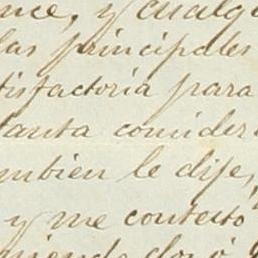 nce, y cualqu
las principales
tisfactoria para
tanta consider
mbien le dije,
y me contestó